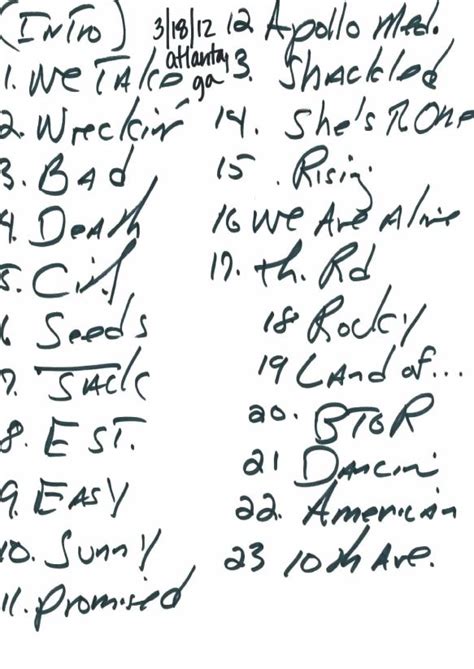 (Intro)
3/18/12
atlanta,
ga
1. We Take
2. Wreckin'
3. Bad
4. Death
5. Civil
6 Seeds
7. Jack
8. EST.
9. EASY
10. Sunny
11. Promised
12 Apollo Med.
13. Shackled
14. She's The One
15. Rising
16 We Are Alive
17. Th. Rd
18 Rocky
19 Land of...
20. BTOR
21 Dancin
22. American
23 10th Ave.